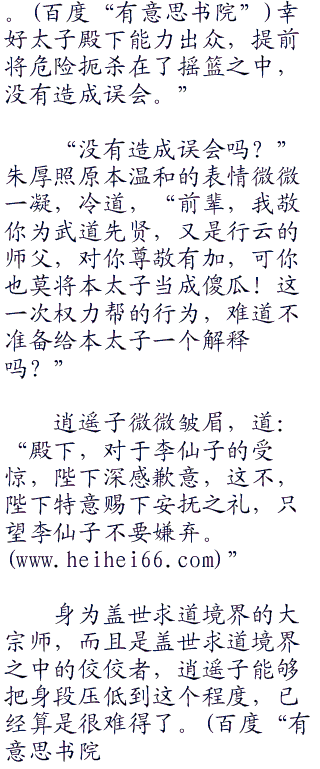 。(百度“有意思书院”)幸
好太子殿下能力出众，提前
将危险扼杀在了摇篮之中，
没有造成误会。”
“没有造成误会吗？”
朱厚照原本温和的表情微微
一凝，冷道，“前辈，我敬
你为武道先贤，又是行云的
师父，对你尊敬有加，可你
也莫将本太子当成傻瓜！这
一次权力帮的行为，难道不
准备给本太子一个解释
吗？”
逍遥子微微皱眉，道：
“殿下，对于李仙子的受
惊，陛下深感歉意，这不，
陛下特意赐下安抚之礼，只
望李仙子不要嫌弃。
(www.heihei66.com)”
身为盖世求道境界的大
宗师，而且是盖世求道境界
之中的佼佼者，逍遥子能够
把身段压低到这个程度，已
经算是很难得了。(百度“有
意思书院